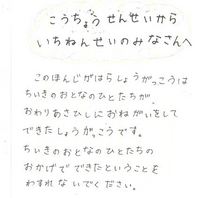 こうちょう せんせいから
いちねんせいのみなさんへ
このほんじがはらしょうがっこうは
ちいきのおとなのひとたちが
おわりあさひしにおねがいをして
できたしょうがっこうです。
ちいきのおとなのひとたちの
おかげでできたということを
わすれないでください。